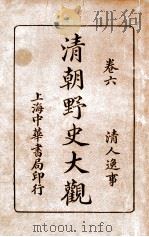 卷六　清人逸事
清朝野史大觀
上海中華書局印行